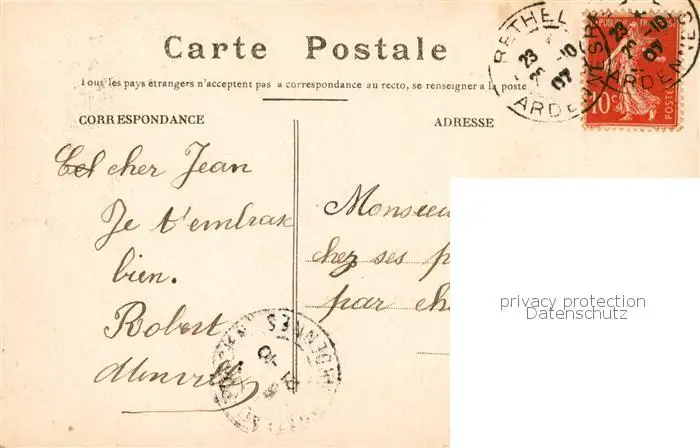 Carte Postale
Tous les pays étrangers n'acceptent pas a correspondance au recto, se renseigner a la poste
CORRESPONDANCE
ADRESSE
cher Jean
Je t'embrasse
bien.
Robert
Monsieur
chez ses p
par ch
RETHEL
23
ARDENNES
REPUBLIQUE FRANCAISE
10c
POSTES
privacy protection
Datenschutz